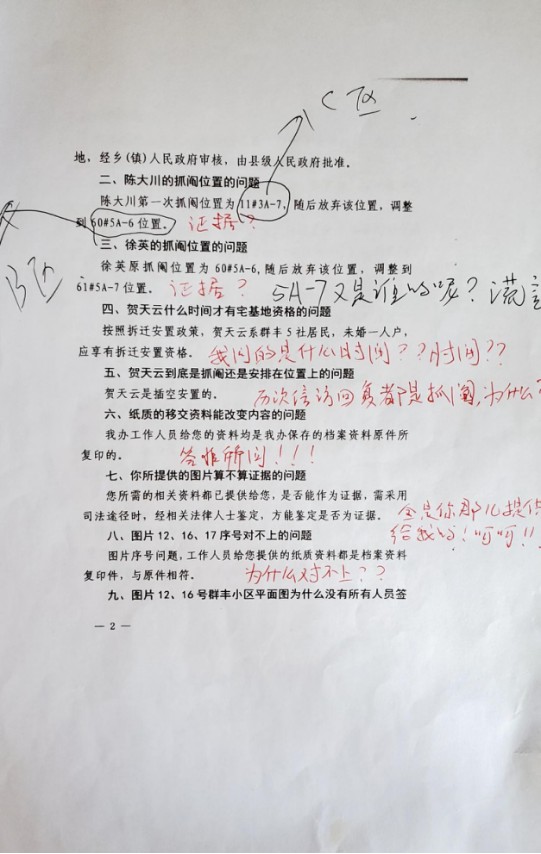 C区
地，经乡(镇)人民政府审核，由县级人民政府批准。
二、陈大川的抓阄位置的问题
陈大川第一次抓阄位置为 11#3A-7，随后放弃该位置，调整
到 60#5A-6 位置。 证据？
三、徐英的抓阄位置的问题
徐英原抓阄位置为 60#5A-6，随后放弃该位置，调整到
B区
61#5A-7 位置。 证据？ 5A-7又是谁的呢？谎言
四、贺天云什么时间才有宅基地资格的问题
按照拆迁安置政策，贺天云系群丰 5 社居民，未婚一人户，
应享有拆迁安置资格。 我问的是什么时间？？时间？？
五、贺天云到底是抓阄还是安排在位置上的问题
贺天云是插空安置的。 历次信访回复都是抓阄，为什么
六、纸质的移交资料能改变内容的问题
我办工作人员给您的资料均是我办保存的档案资料原件所
复印的。 答非所问！！！
七、你所提供的图片算不算证据的问题
您所需的相关资料都已提供给您，是否能作为证据，需采用
司法途径时，经相关法律人士鉴定，方能鉴定是否为证据。 全是你那儿提供
给我的！呵呵！！
八、图片 12、16、17 序号对不上的问题
图片序号问题，工作人员给您提供的纸质资料都是档案资料
复印件，与原件相符。 为什么对不上？？
九、图片 12、16 号群丰小区平面图为什么没有所有人员签
— 2 —